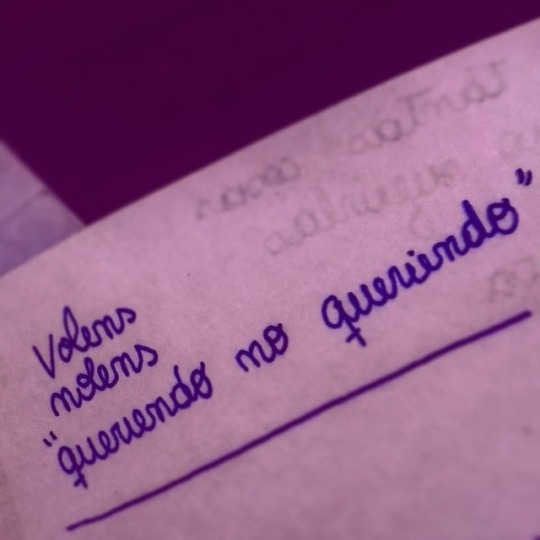 Volens
nolens
"queriendo no queriendo"